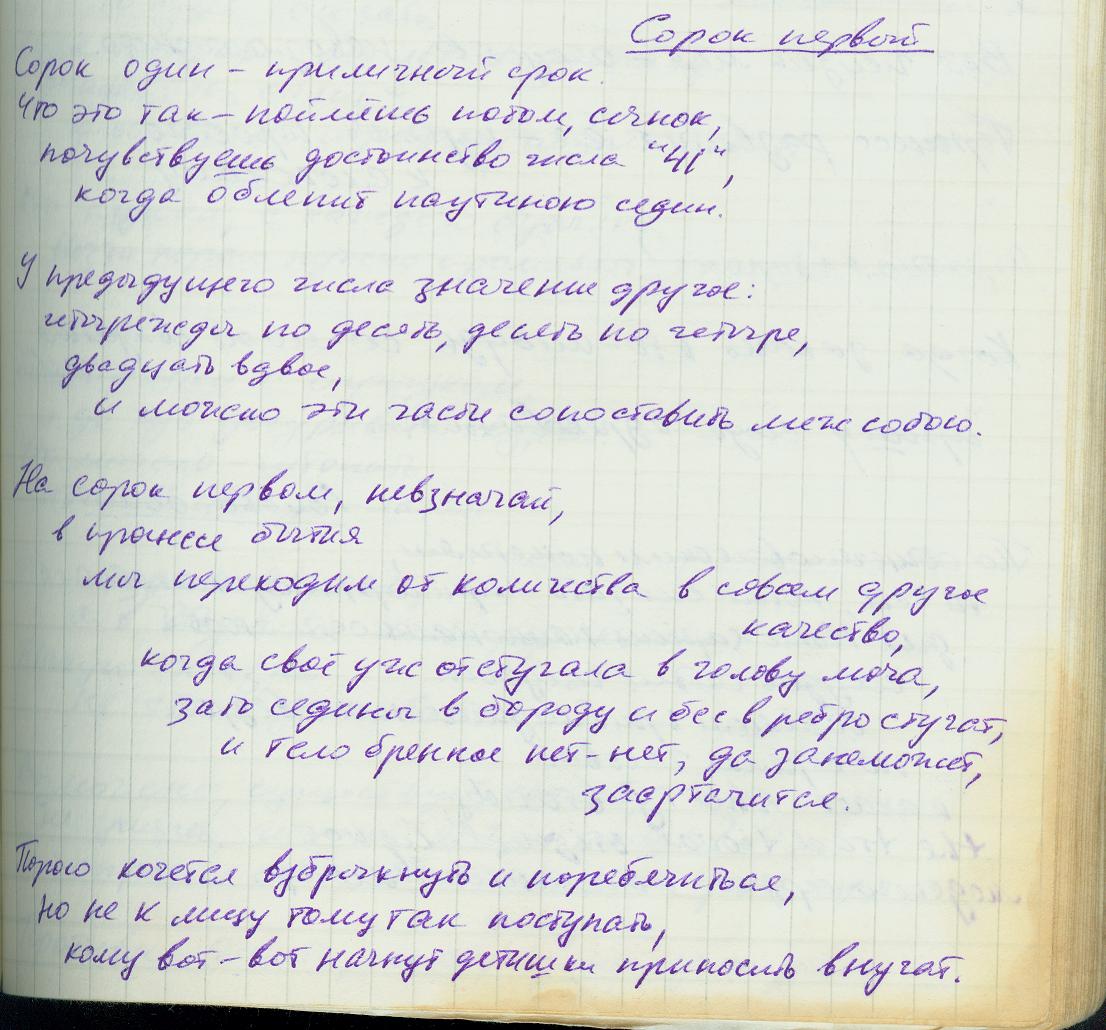 Сорок первый
Сорок один – приличный срок.
Что это так – поймёшь потом, сынок,
почувствуешь достоинство числа "41",
когда облепит паутиною седин.
У предыдущего числа значение другое:
четырежды по десять, десять по четыре,
двадцать вдвое,
и можно эти части сопоставить меж собою.
На сорок первом, невзначай,
в трансе бытия
мы переходим от количества в совсем другое
качество,
когда своё уж отстучала в голову моча,
зато седины в бороду и бес в ребро стучат,
и тело бренное нет-нет, да занеможет,
заартачится.
Порою хочется взбрыкнуть и поребячиться,
но не к лицу тому так поступать,
кому вот-вот начнут детишки приносить внучат.